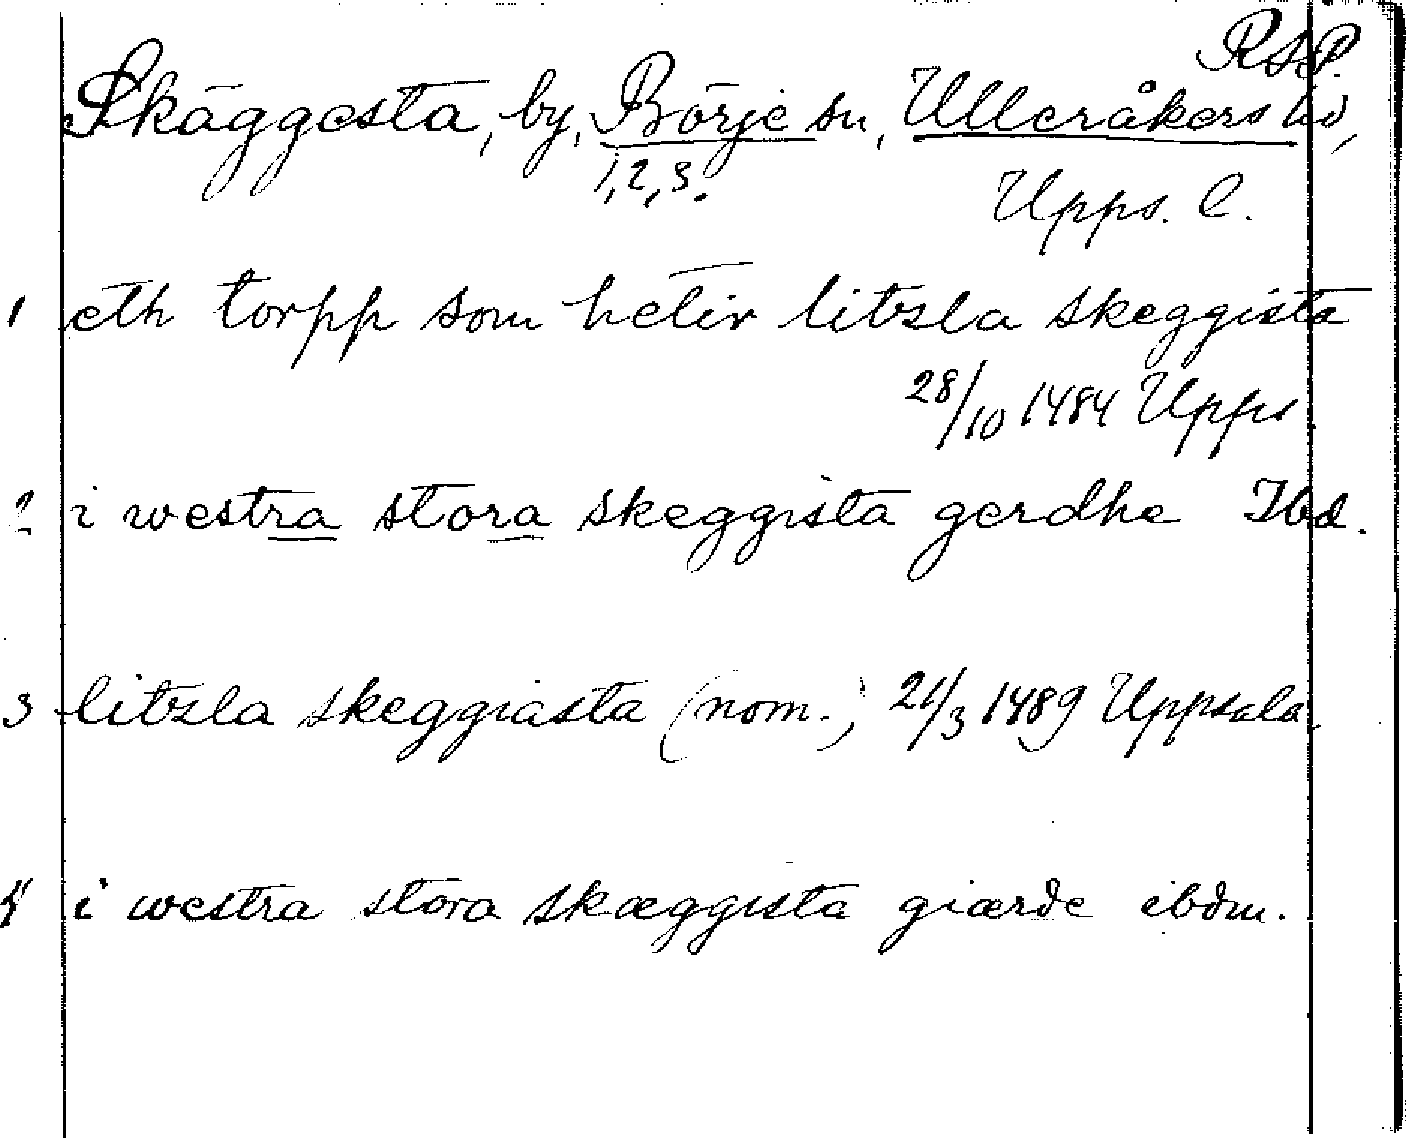 RAP.
Skäggesta, by, Börje sn, Ulleråkers hd,
1, 2, 3.
Upps. l.
1 eth torpp som hetir litzsla skeggista
28/10 1484 Upps.
2 i westra stora skeggista gerdhe Ibd.
3 litzsla skeggiasta (nom.) 21/3 1489 Uppsala.
4 i westra stora skæggista giærde ibdm.